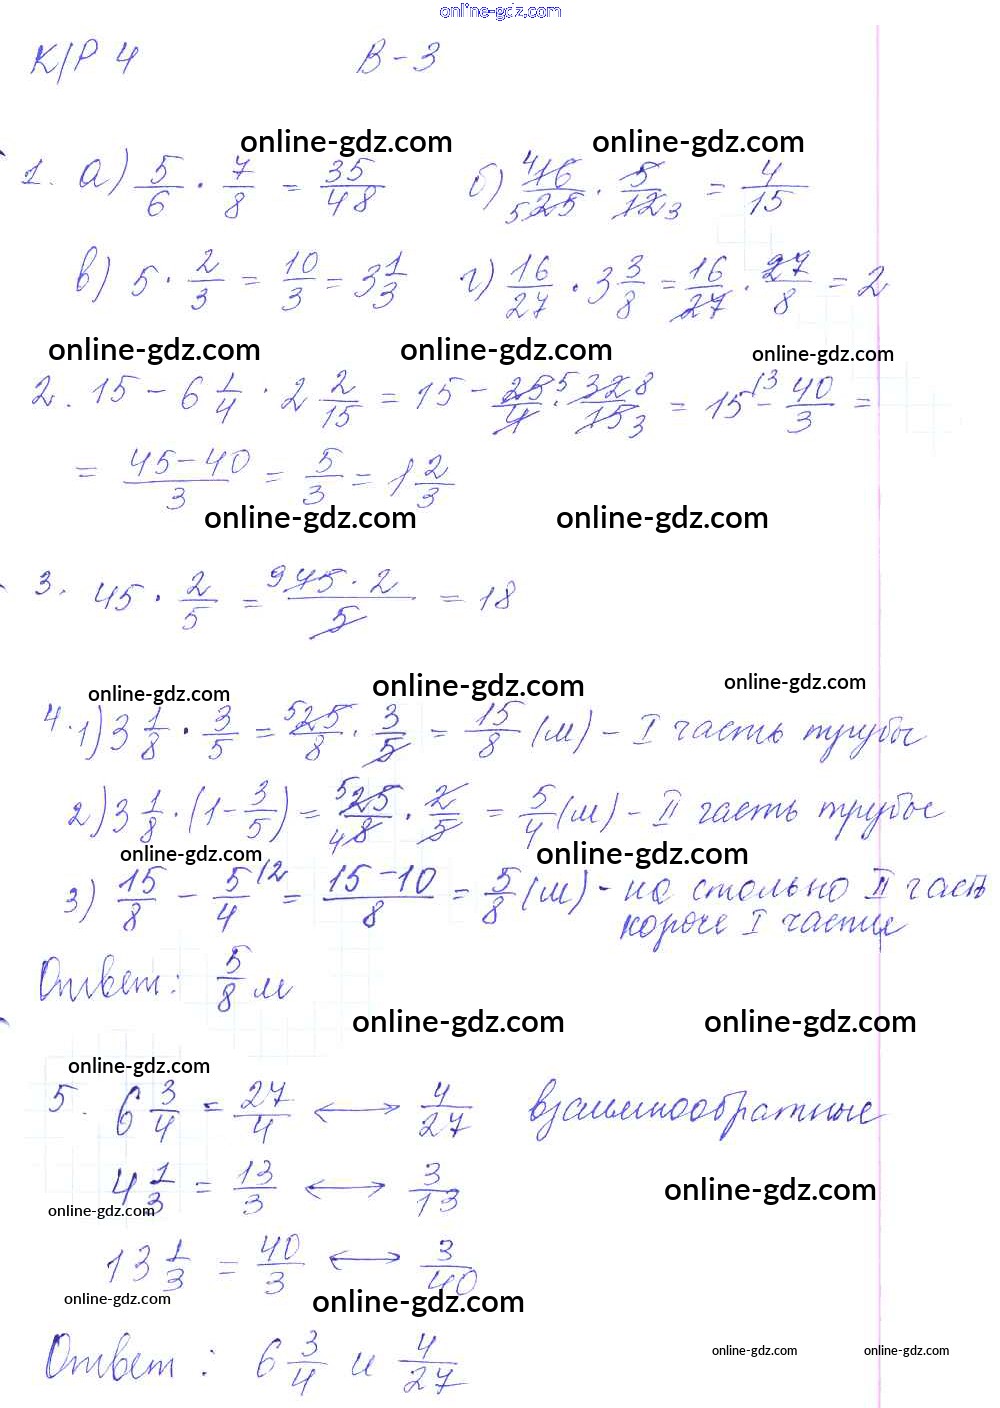 online-gdz.com
К/Р 4 В-3
online-gdz.com online-gdz.com
1. а) 5/6 · 7/8 = 35/48 б) 4 16/5 25 · 5/12 3 = 4/15
в) 5 · 2/3 = 10/3 = 3 1/3 г) 16/27 · 3 3/8 = 16/27 · 27/8 = 2
online-gdz.com online-gdz.com online-gdz.com
2. 15 - 6 1/4 · 2 2/15 = 15 - 25 5/4 · 32 8/15 3 = 15 13 - 40/3 =
= 45-40/3 = 5/3 = 1 2/3
online-gdz.com online-gdz.com
3. 45 · 2/5 = 9 45 · 2/5 = 18
online-gdz.com online-gdz.com online-gdz.com
4. 1) 3 1/8 · 3/5 = 5 25/8 · 3/5 = 15/8 (м) - I часть трубы
2) 3 1/8 · (1 - 3/5) = 5 25/4 8 · 2/5 = 5/4 (м) - II часть трубы
online-gdz.com online-gdz.com
3) 15/8 - 5/4 12 = 15-10/8 = 5/8 (м) - на столько II часть
короче I части
Ответ: 5/8 м
online-gdz.com online-gdz.com
online-gdz.com
5. 6 3/4 = 27/4 ↔ 4/27 взаимнообратные
4 1/3 = 13/3 ↔ 3/13
online-gdz.com
online-gdz.com
13 1/3 = 40/3 ↔ 3/40
online-gdz.com online-gdz.com
Ответ: 6 3/4 и 4/27
online-gdz.com online-gdz.com